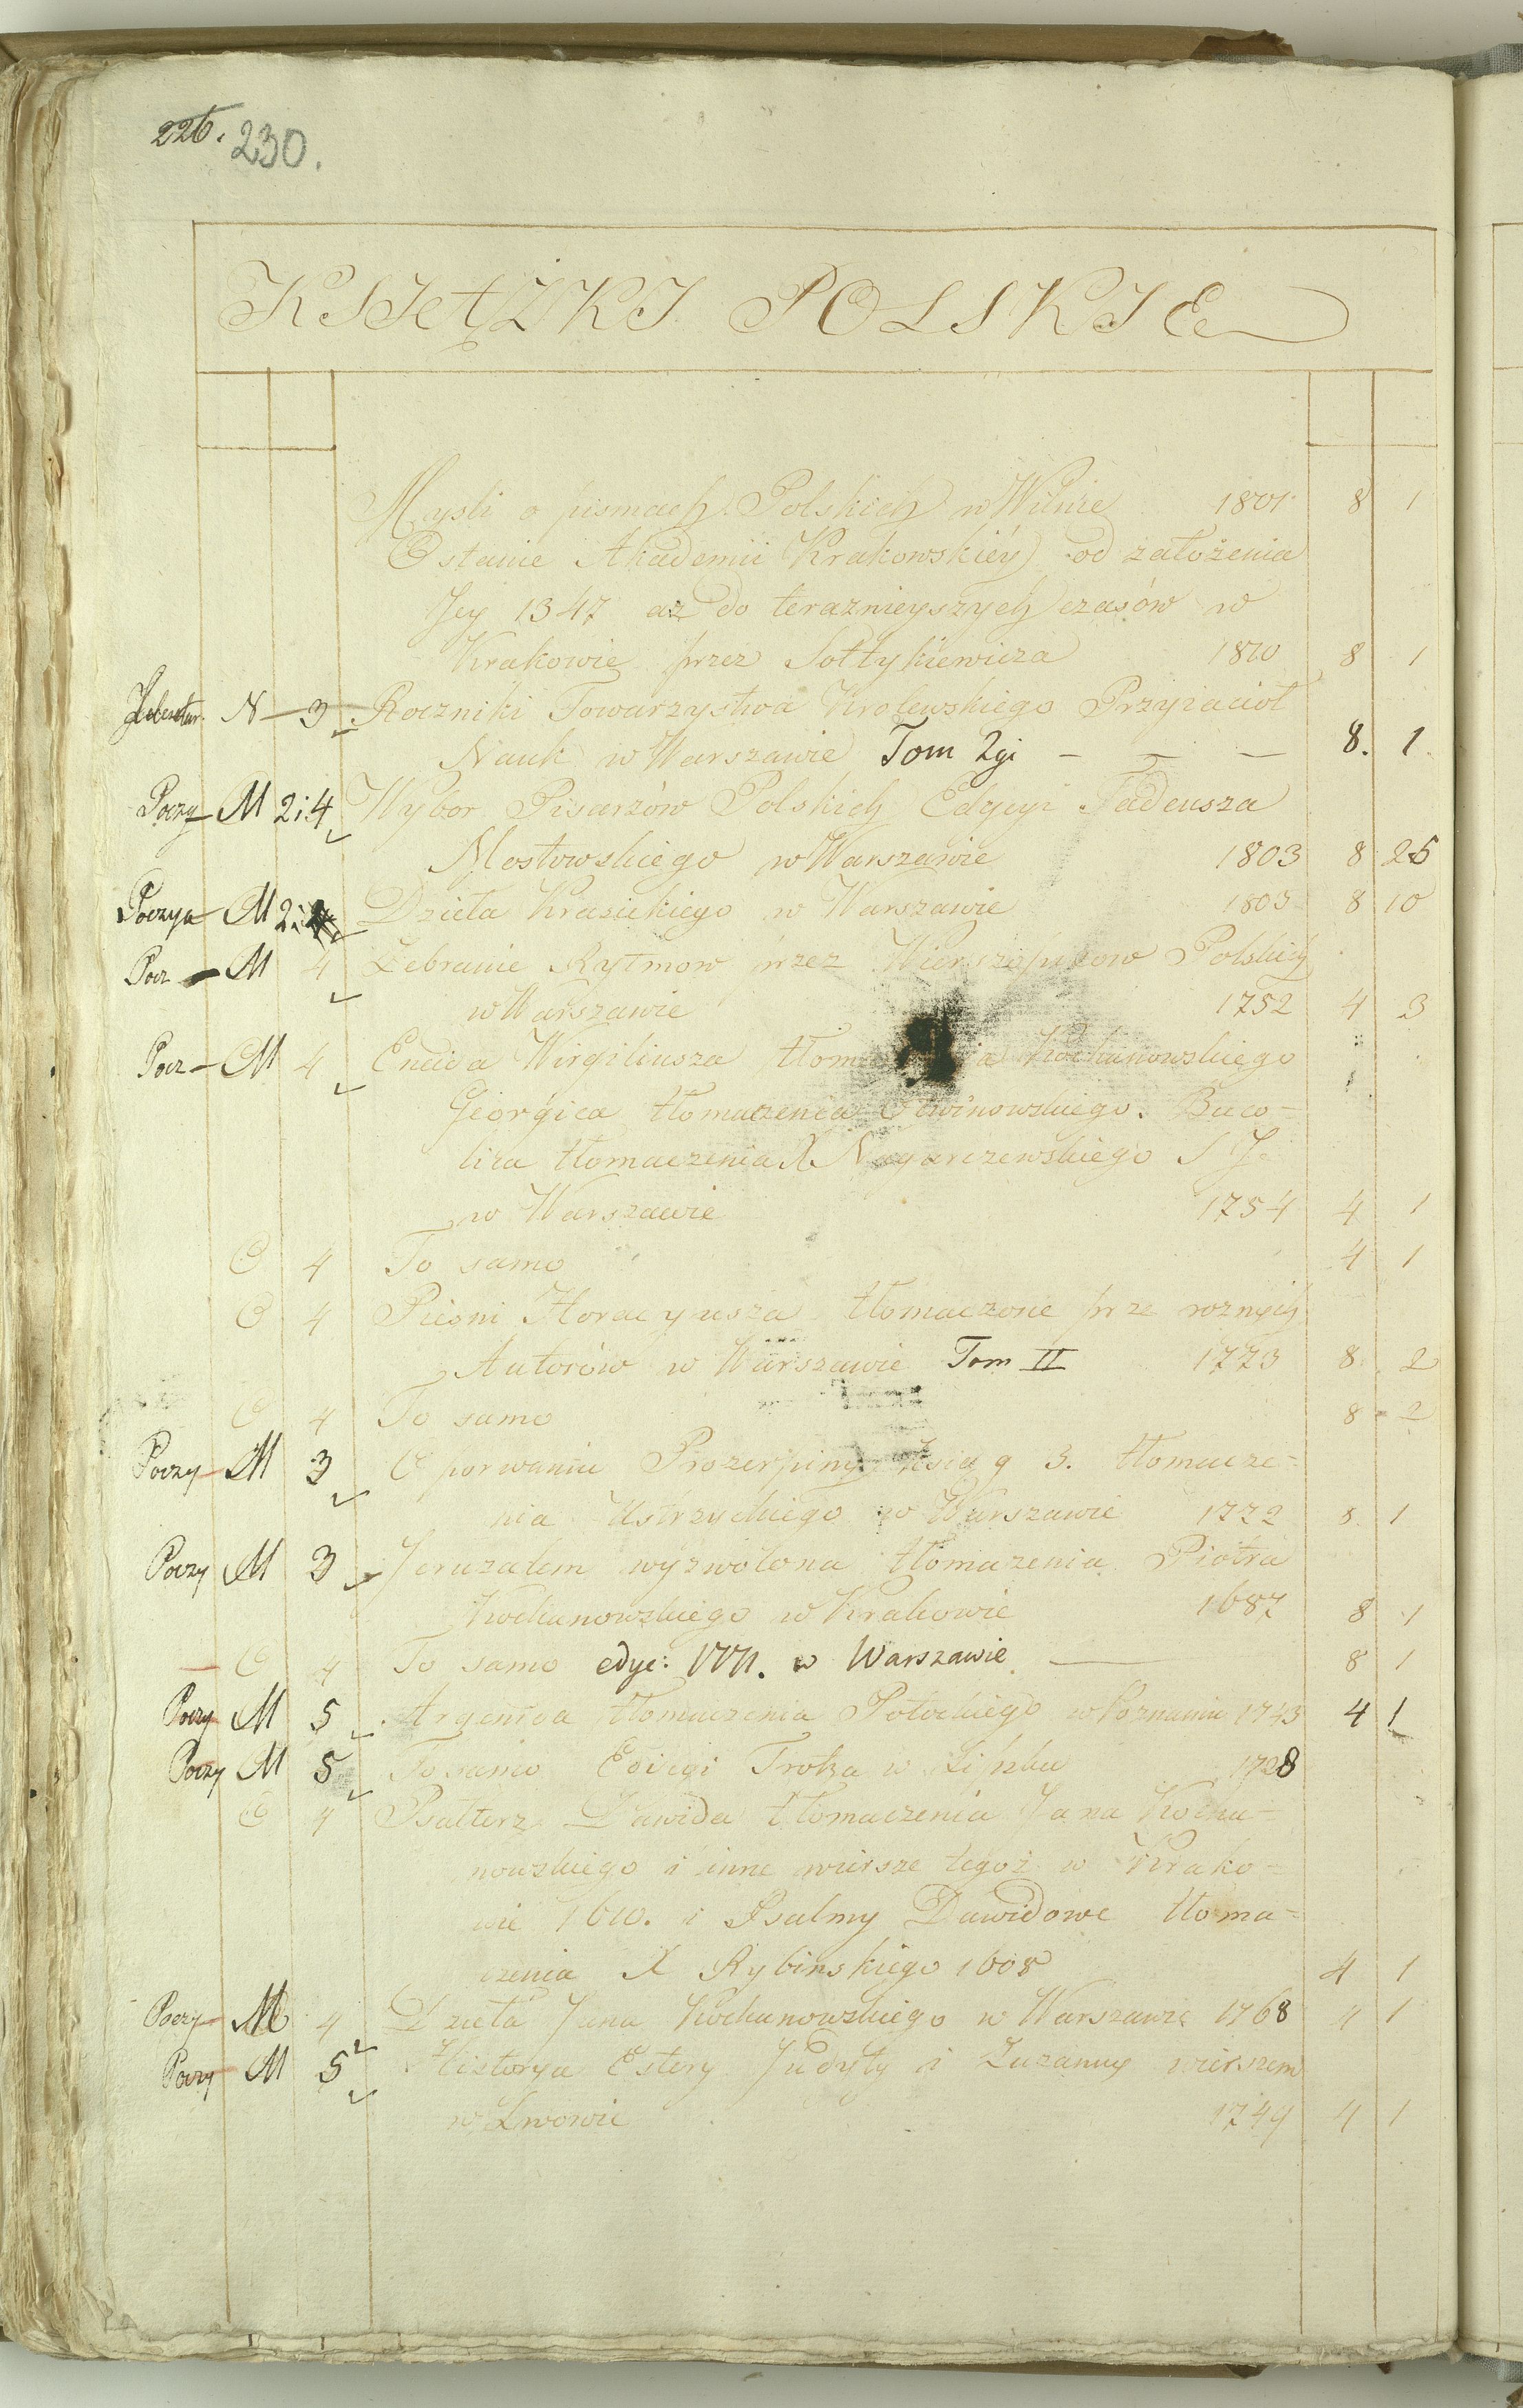 226. 230.
KSIĄŻKI POLSKIE
Mysli o pismach Polskich w Wilnie 1801 8 1
O stanie Akademii Krakowskiéy od założenia
Jey 1347 aż do teraznieyszych czasów w
Krakowie przez Sołtykiewicza 1810 8 1
N — 3 Roczniki Towarzystwa Krolewskiego Przyiaciół
Nauk w Warszawie Tom 2gi — — — 8. 1.
Poezy — M 2:4 Wybor Pisarzów Polskich Edycyi Tadeusza
Mostowskiego w Warszawie 1803 8 25
Poezya — M 2: Dzieła Krasickiego w Warszawie 1803 8 10
Poez — M 4 Zebranie Rytmow przez Wierszopisow Polskich
w Warszawie 1752 4 3
Poez — M 4 Eneida Wirgiliusza Kochanowskiego
Georgica tłomaczenia Otwinowskiego. Buco-
lika tłomaczenia X Nagurczewskiego S J.
w Warszawie 1754 4 1
O 4 To samo 4 1
O 4 Piesni Horacyusza tłomaczone prze roznych
Autorów w Warszawie Tom II 1773 8 2
O 4 To samo 8 - 2
Poezy — M 3 O porwaniu Prozerpiny ksiąg 3. tłomacze-
nia Ustrzyckiego w Warszawie 1772 8 1
Poezy M 3 Jeruzalem wyzwolona tłomaczenia Piotra
Kochanowskiego w Krakowie 1687 8 1
— O 4 To samo edyc: 1771. w Warszawie — 8 1
Poezy M 5 Argenida tłomaczenia Potockiego w Poznaniu 1743 4 1
Poezy M 5 To samo Edicyi Troka w Lipsku 1728
O 4 Psałterz Dawida tłomaczenia Jana Kocha-
nowskiego i inne wiersze tegoż w Krako-
wie 1610. i Psalmy Dawidowe tłoma-
czenia X Rybinskiego 1608 4 1
Poezy — M 4 Dzieła Jana Kochanowskiego w Warszawie 1768 4 1
Poezy — M 5 Historya Estery Judyty i Zuzanny wierszem
w Lwowie 1749 4 1